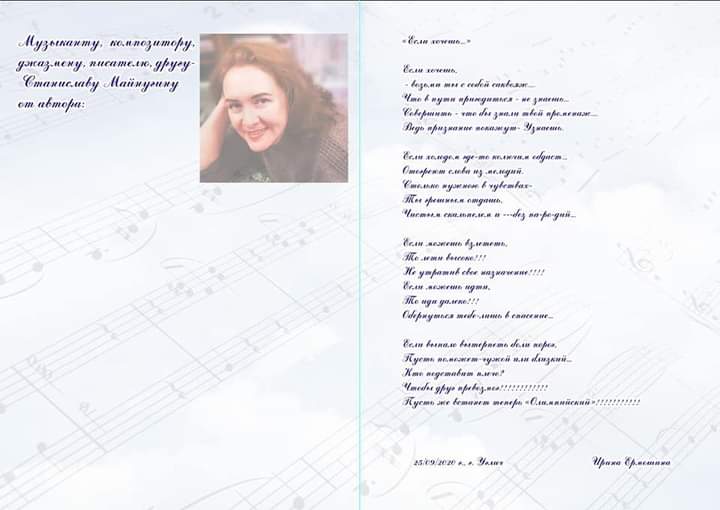 Музыканту, композитору,
джазмену, писателю, другу-
Станиславу Майнугину
от автора:
«Если хочешь...»
Если хочешь,
- возьми ты с собой саквояж...
Что в пути пригодиться - не знаешь...
Совершить - что бы знали твой променаж....
Ведь признание покажут- Узнаешь.
Если холодом где-то колючим обдаст...
Отогреют слова из мелодий.
Столько нужного в чувствах-
Ты грешным отдашь,
Чистым скальпелем и ---без па-ро-дий...
Если можешь взлететь,
То лети высоко!!!
Не утратив свое назначение!!!!
Если можешь идти,
То иди далеко!!!
Обернуться тебе-лишь в спасение...
Если выпало вытерпеть боли порог,
Пусть поможет-чужой или близкий...
Кто подставит плечо?
Чтобы друг превозмог!!!!!!!!!!!!
Пусть же встанет теперь «Олимпийский»!!!!!!!!!!!
25/09/2020 г., г. Углич
Ирина Ермошина